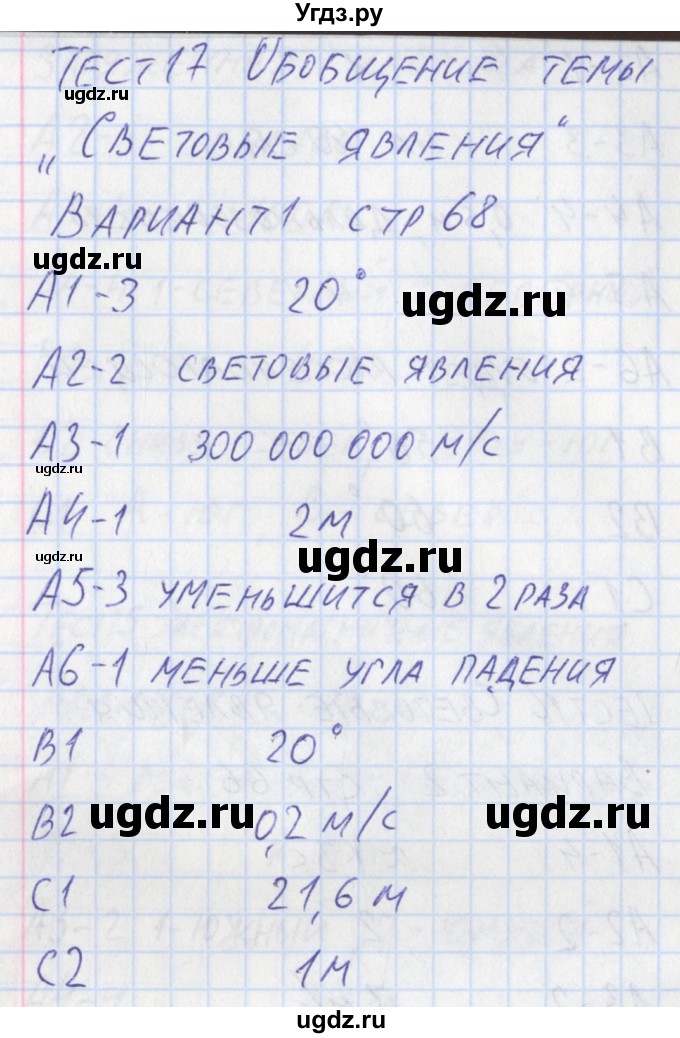 Угдз.ру
ТЕСТ 17 ОБОБЩЕНИЕ ТЕМЫ
„СВЕТОВЫЕ ЯВЛЕНИЯ“
ВАРИАНТ 1 СТР 68
А1-3 20°
А2-2 СВЕТОВЫЕ ЯВЛЕНИЯ
А3-1 300 000 000 М/С
А4-1 2М
А5-3 УМЕНЬШИТСЯ В 2 РАЗА
А6-1 МЕНЬШЕ УГЛА ПАДЕНИЯ
В1 20°
В2 0,2 М/С
С1 21,6 М
С2 1М
ugdz.ru
ugdz.ru
ugdz.ru
ugdz.ru
ugdz.ru
ugdz.ru
ugdz.ru
ugdz.ru
ugdz.ru